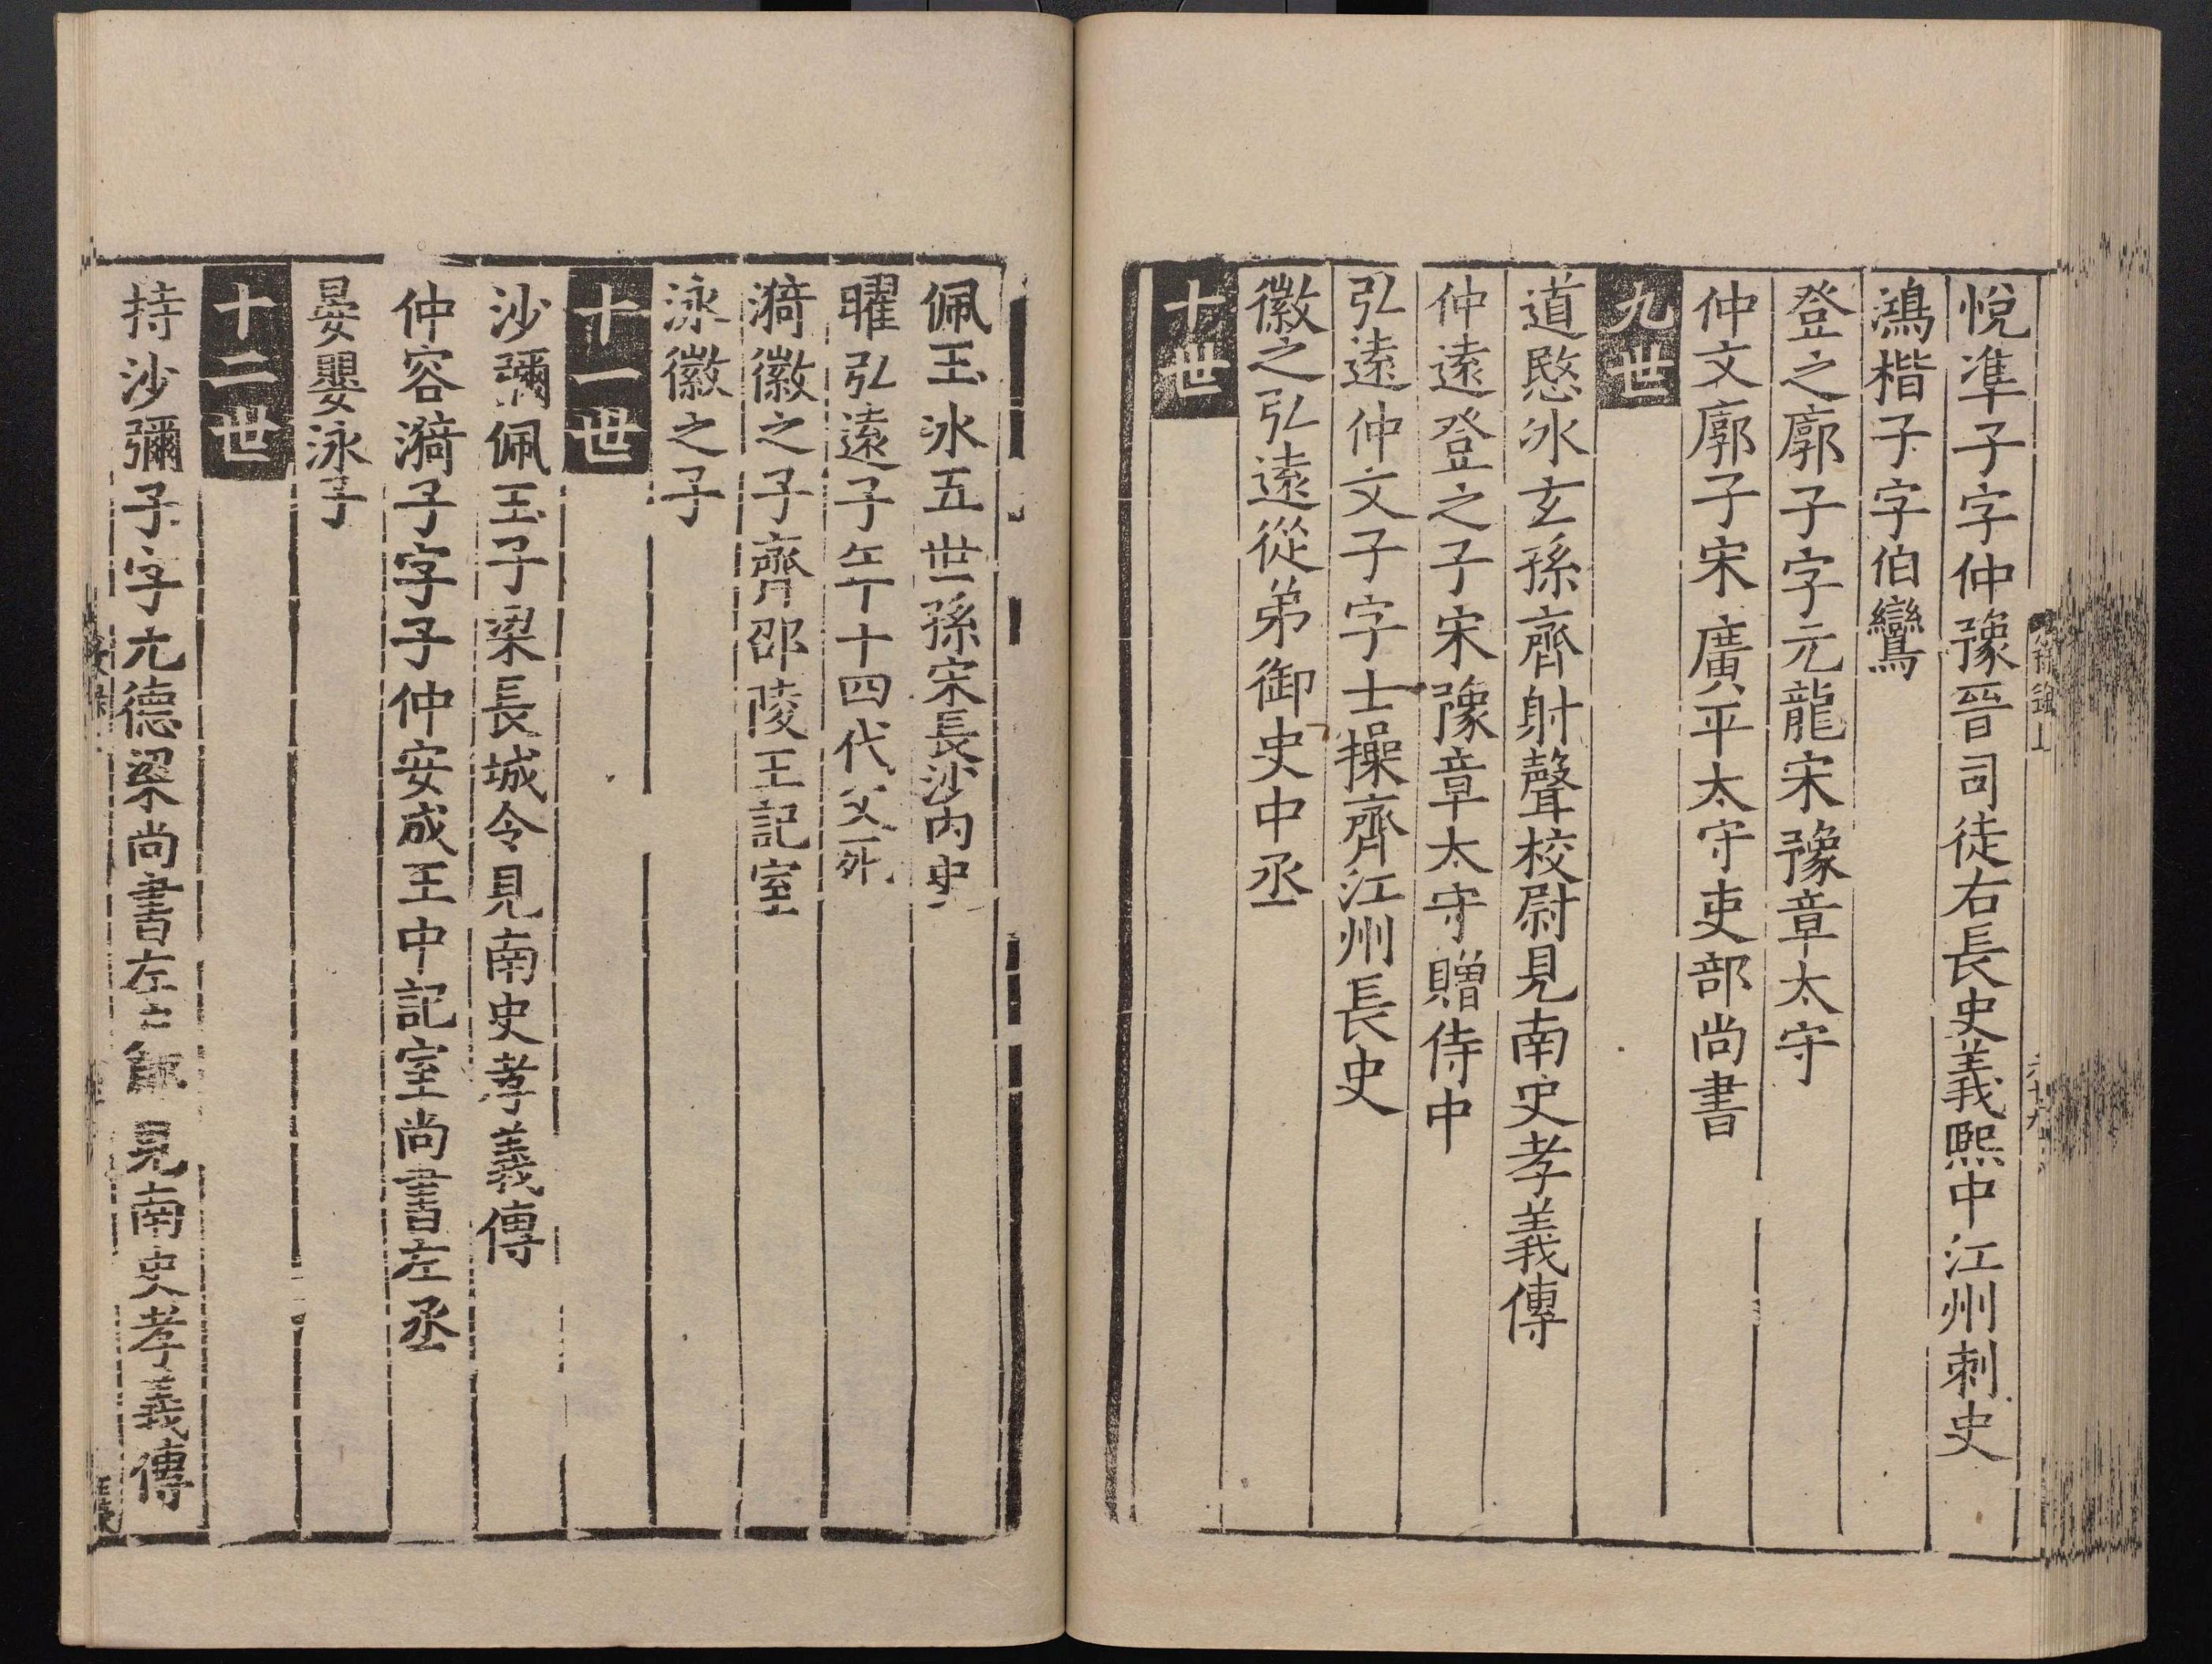 悅準子字仲豫晉司徒右長史義熙中江州刺史
鴻楷子字伯鸞
登之廓子字元龍宋豫章太守
仲文廓子宋廣平太守吏部尚書
九世
道愍冰玄孫齊射聲校尉見南史孝義傳
仲遠登之子宋豫章太守贈侍中
弘遠仲文子字士操齊江州長史
徽之弘遠從弟御史中丞
十世
佩玉冰五世孫宋長沙內史
曜弘遠子年十四代父死
漪徽之子齊邵陵王記室
泳徽之子
十一世
沙彌佩玉子梁長城令見南史孝義傳
仲容漪子字子仲安成王中記室尚書左丞
晏嬰泳子
十二世
持沙彌子字元德梁尚書左見南史孝義傳